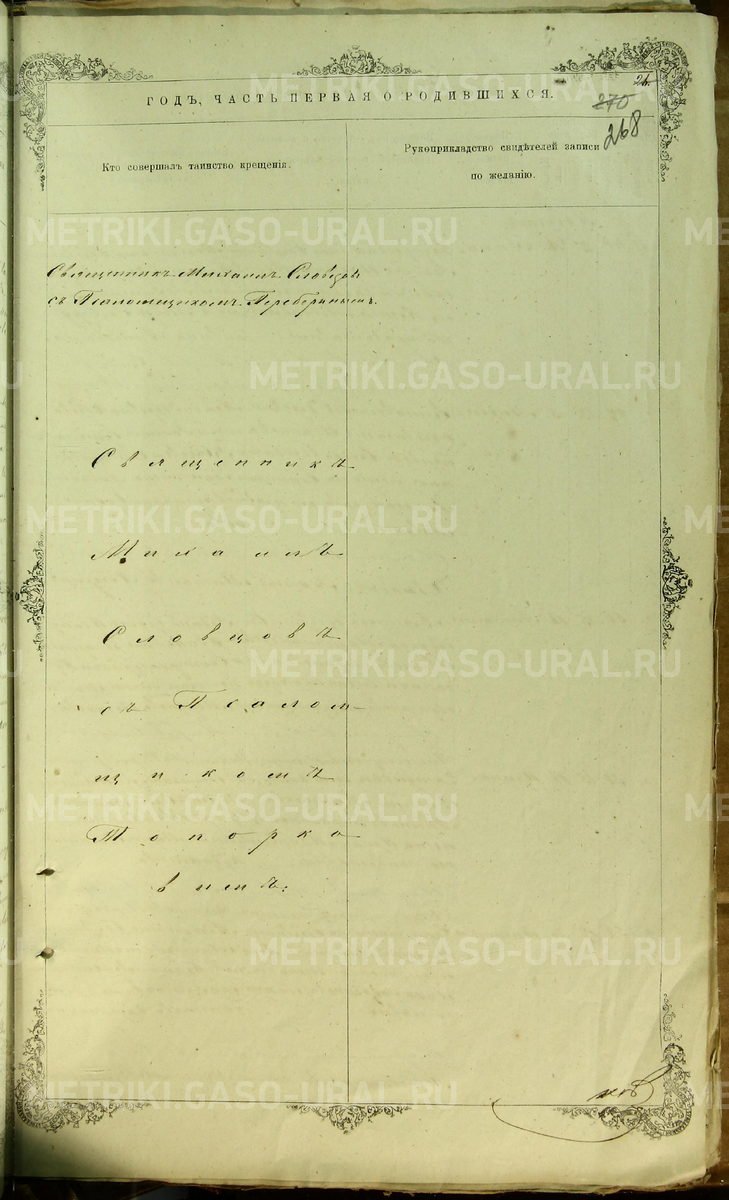 26.
ГОДЪ, ЧАСТЬ ПЕРВАЯ О РОДИВШИХСЯ.
270
268
Кто совершалъ таинство крещенія.
Рукоприкладство свидѣтелей записи
по желанію.
Священникъ Михаилъ Словцовъ
съ Псаломщикомъ
Священникъ
Михаилъ
Словцовъ
съ Псалом-
щикомъ
Топорко
вымъ.
METRIKI.GASO-URAL.RU